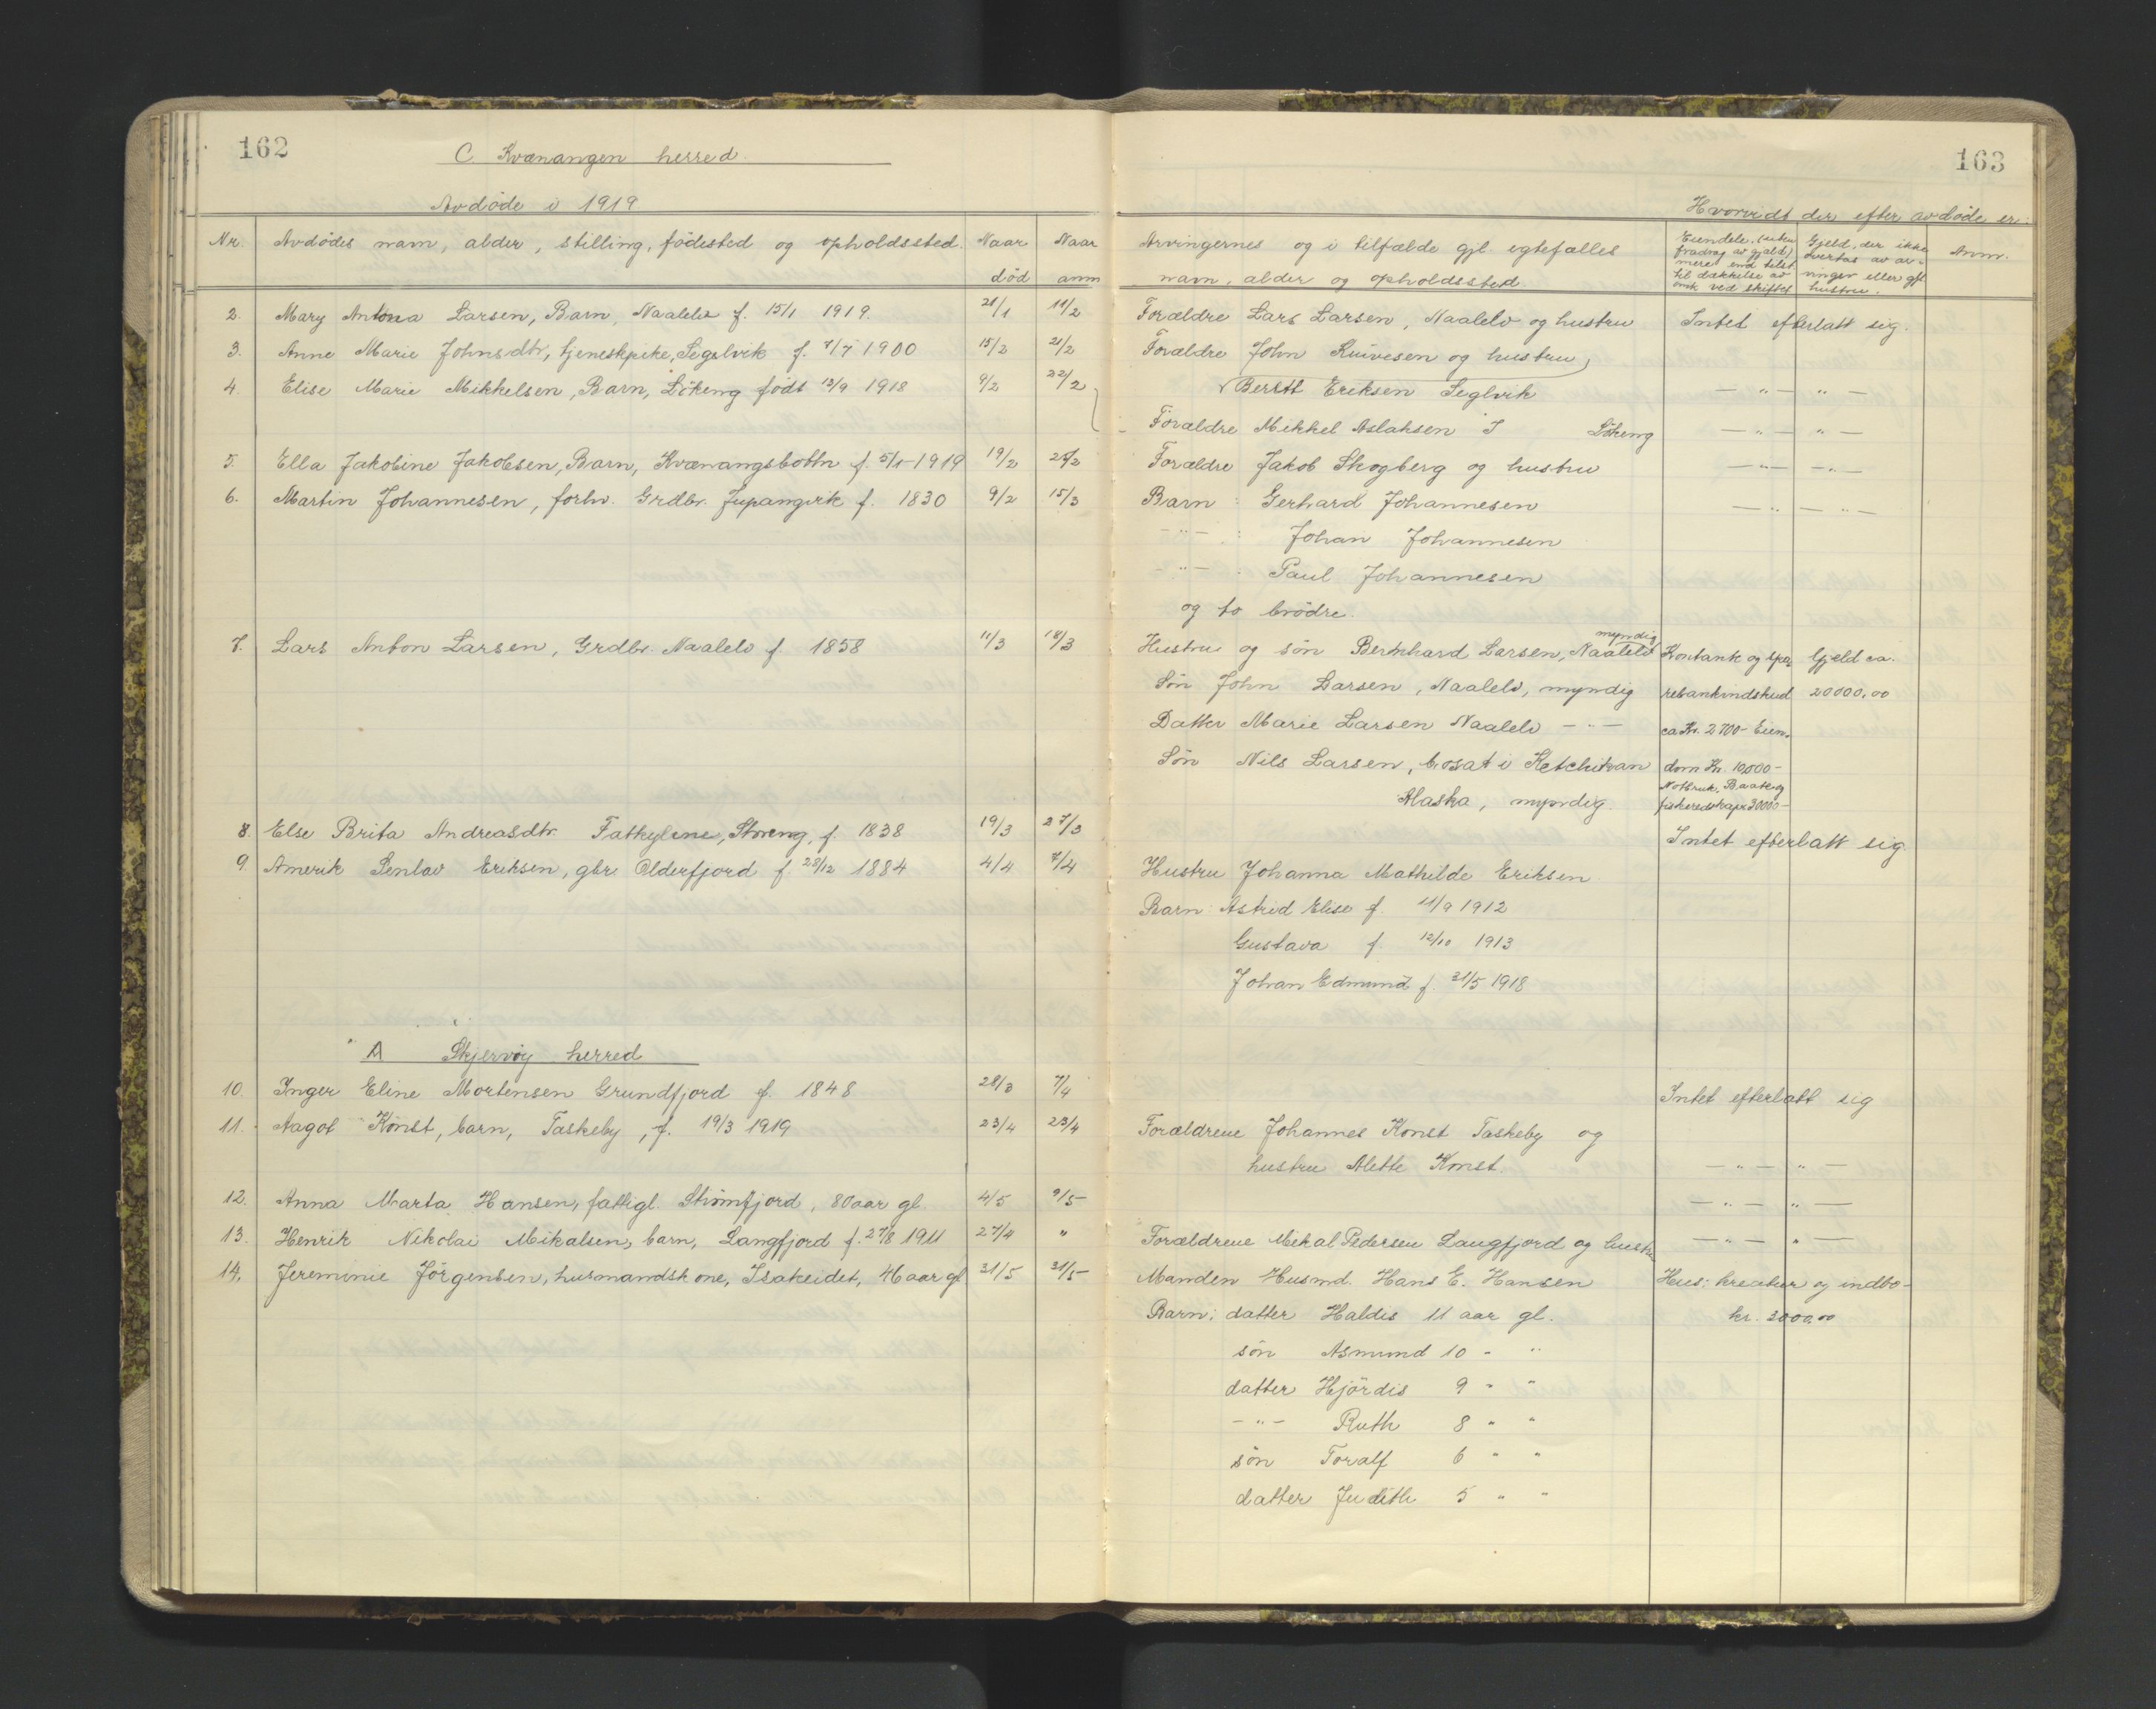 162
C Kvænangen herred
Avdöde i 1919
Nr. Avdödes navn, alder, stilling, födested og opholdssted. Naar död Naar anm
2. Mary Antona Larsen, Barn, Naalelv f. 15/1 1919. 21/1 11/2
3. Anne Marie Johnsdtr, tjenestpike, Segelvik f. 7/7 1900 15/2 21/2
4. Elise Marie Mikkelsen, Barn, Lökeng födt 12/9 1918 9/2 22/2
5. Ella Jakobine Jakobsen, Barn, Kvænangsbottn f. 5/1 1919 19/2 /2
6. Martin Johannesen, forhv. Grdbr. Jupangvik f. 1830 9/2 15/3
7. Lars Anton Larsen, Grdbr. Naalelv f. 1858 11/3 18/3
8. Else Brita Andreasdtr. Storeng, f. 1838 19/3 27/3
9. Amerik Senlav Eriksen, gbr. Olderfjord f. 28/12 1884 4/4 7/4
A Skjervöy herred
10. Inger Eline Mortensen Grundfjord f. 1848 28/3 7/4
11. Aagot Konst, barn, Taskeby, f. 19/3 1919 23/4 23/4
12. Anna Marta Hansen, fattigl. Strömfjord, 80 aar gl. 4/5 9/5
13. Henrik Nikolai Mikalsen, barn, Langfjord f. 27/8 1911 27/4 "
14. Jeremine Jörgensen, husmandskone, Isakeidet, 46 aar gl 21/5 31/5
163
Hvorvidt der efter avdöde er:
Arvingernes og i tilfælde gjl. egtefælles
navn, alder og opholdssted.
Eiendele, (uten
fradrag av gjæld)
mere end tilst.
til dækkelse av
omk ved skiftet
Gjeld, der ikke
overtas av ar-
vinger eller gfl
hustru.
Anm.
Forældre Lars Larsen, Naalelv og hustru Intet efterlatt sig.
Forældre John Ruivesen og hustru
Berett Eriksen Seglvik — " — " —
Forældre Mikkel Aslaksen Lökeng — " — " —
Forældre Jakob Skogberg og hustru — " — " —
Barn: Gerhard Johannesen — " — " —
— " — : Johan Johannesen
— " — : Paul Johannesen
og to brödre.
myndig
Hustru og sön Bernhard Larsen, Naalelv Kontank og spa Gjeld ca.
Sön John Larsen, Naalelv, myndig rebankindskud 20000,00
Datter Marie Larsen Naalelv — " — ca Kr. 2700 - Eien.
Sön Nils Larsen, bosat i Ketchikan dom Kr. 10,000 -
Notbruk, Baat og
Alaska, myndig. fiskeredskaper 30000 -
Intet efterlatt sig
Hustru Johanna Mathilde Eriksen
Barn: Astrid Elise f. 11/9 1912
Gustava f. 12/10 1913
Johan Edmund f. 21/5 1918
Intet efterlatt sig
Forældrene Johannes Konst Taskeby og
hustru Alette Konst. — " — " —
— " — " —
Forældrene Mikal Pedersen Langfjord og hustru — " — " —
Manden Husmd. Hans E. Hansen Hus: kreatur og indbo -
Barn: datter Haldis 11 aar gl. kr. 3000,00
sön Asmund 10 - "
datter Hjördis 9 - "
- " - Ruth 8 " "
sön Toralf 6 " "
datter Judith 5 " "